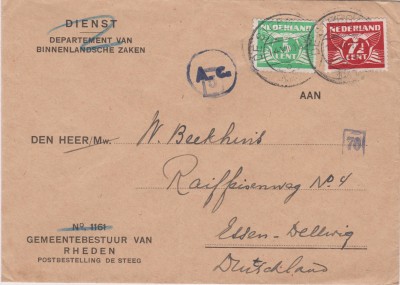 DIENST
DEPARTEMENT VAN
BINNENLANDSCHE ZAKEN
A.C.
NEDERLAND
CENT
NEDERLAND
7½
CENT
AAN
DEN HEER/Mw.
W. Beekhuis
Raiffeisenweg No. 4
Essen-Dellwig
Deutschland
70
No. 1161
GEMEENTEBESTUUR VAN
RHEDEN
POSTBESTELLING DE STEEG